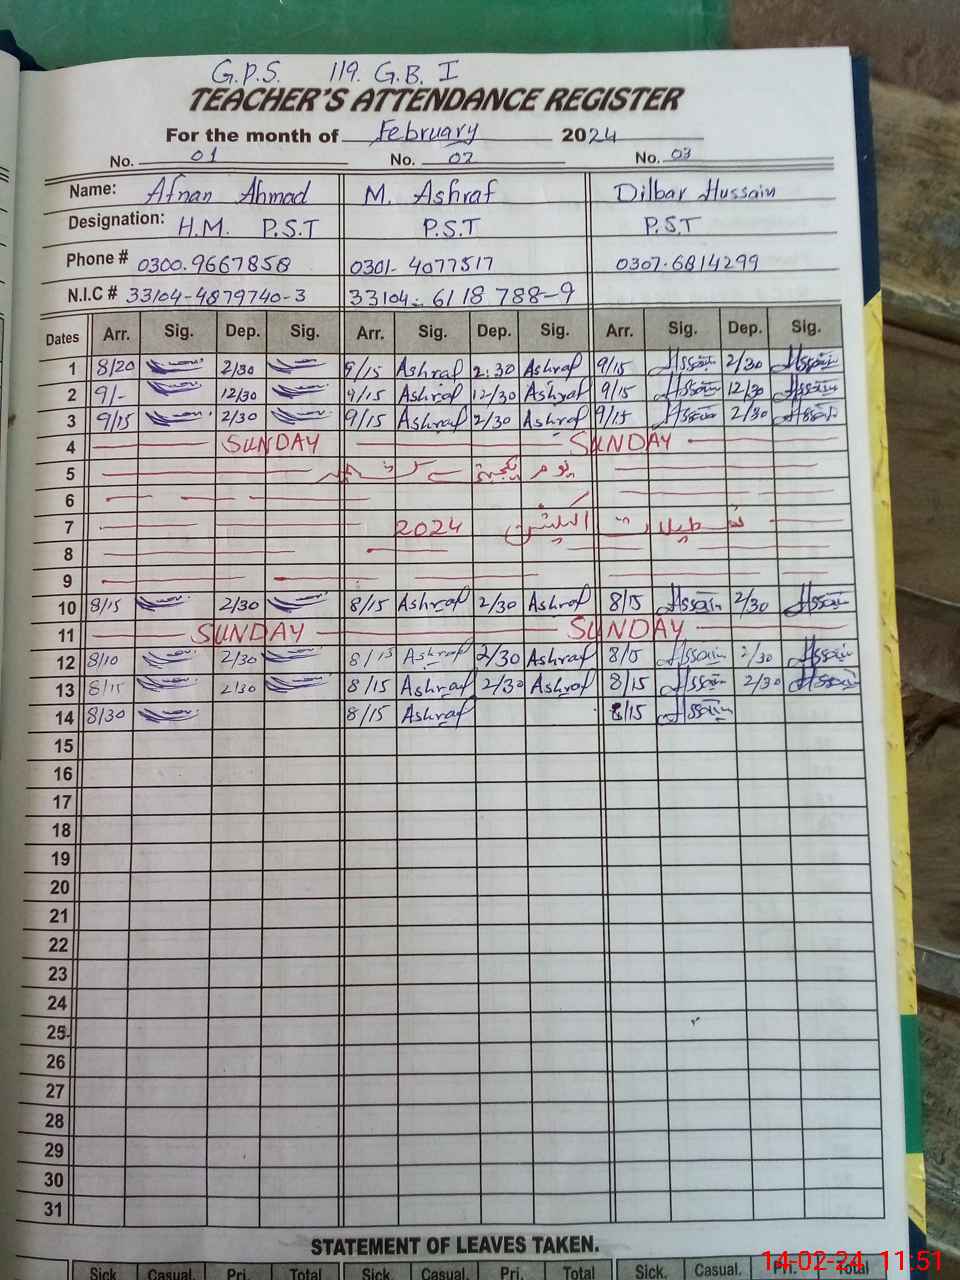 G.P.S. 119. G.B. I
TEACHER'S ATTENDANCE REGISTER
For the month of February 2024
No. 01 No. 02 No. 03
Name: Afnan Ahmad M. Ashraf Dilbar Hussain
Designation: H.M. P.S.T P.S.T P.S.T
Phone # 0300.9667858 0301-4077517 0307.6814299
N.I.C # 33104-4879740-3 33104-6118788-9
Dates Arr. Sig. Dep. Sig. Arr. Sig. Dep. Sig. Arr. Sig. Dep. Sig.
1 8/20 2/30 9/15 Ashraf 2:30 Ashraf 9/15 Hssain 2/30 Hssain
2 9/- 12/30 9/15 Ashraf 12/30 Ashraf 9/15 Hssain 12/30 Hssain
3 9/15 2/30 9/15 Ashraf 2/30 Ashraf 9/15 Hssain 2/30 Hssain
4 SUNDAY SUNDAY
5 یوم یکجہتی کشمیر
6
7 تعطیلات الیکشن 2024
8
9
10 8/15 2/30 8/15 Ashraf 2/30 Ashraf 8/15 Hssain 2/30 Hssain
11 SUNDAY SUNDAY
12 8/10 2/30 8/15 Ashraf 2/30 Ashraf 8/15 Hssain 2/30 Hssain
13 8/15 2/30 8/15 Ashraf 2/30 Ashraf 8/15 Hssain 2/30 Hssain
14 8/30 8/15 Ashraf 8/15 Hssain
15
16
17
18
19
20
21
22
23
24
25
26
27
28
29
30
31
STATEMENT OF LEAVES TAKEN.
Sick Casual. Pri. Total Sick. Casual. Pri. Total Sick. Casual. Pri. Total
14-02-24 11:51